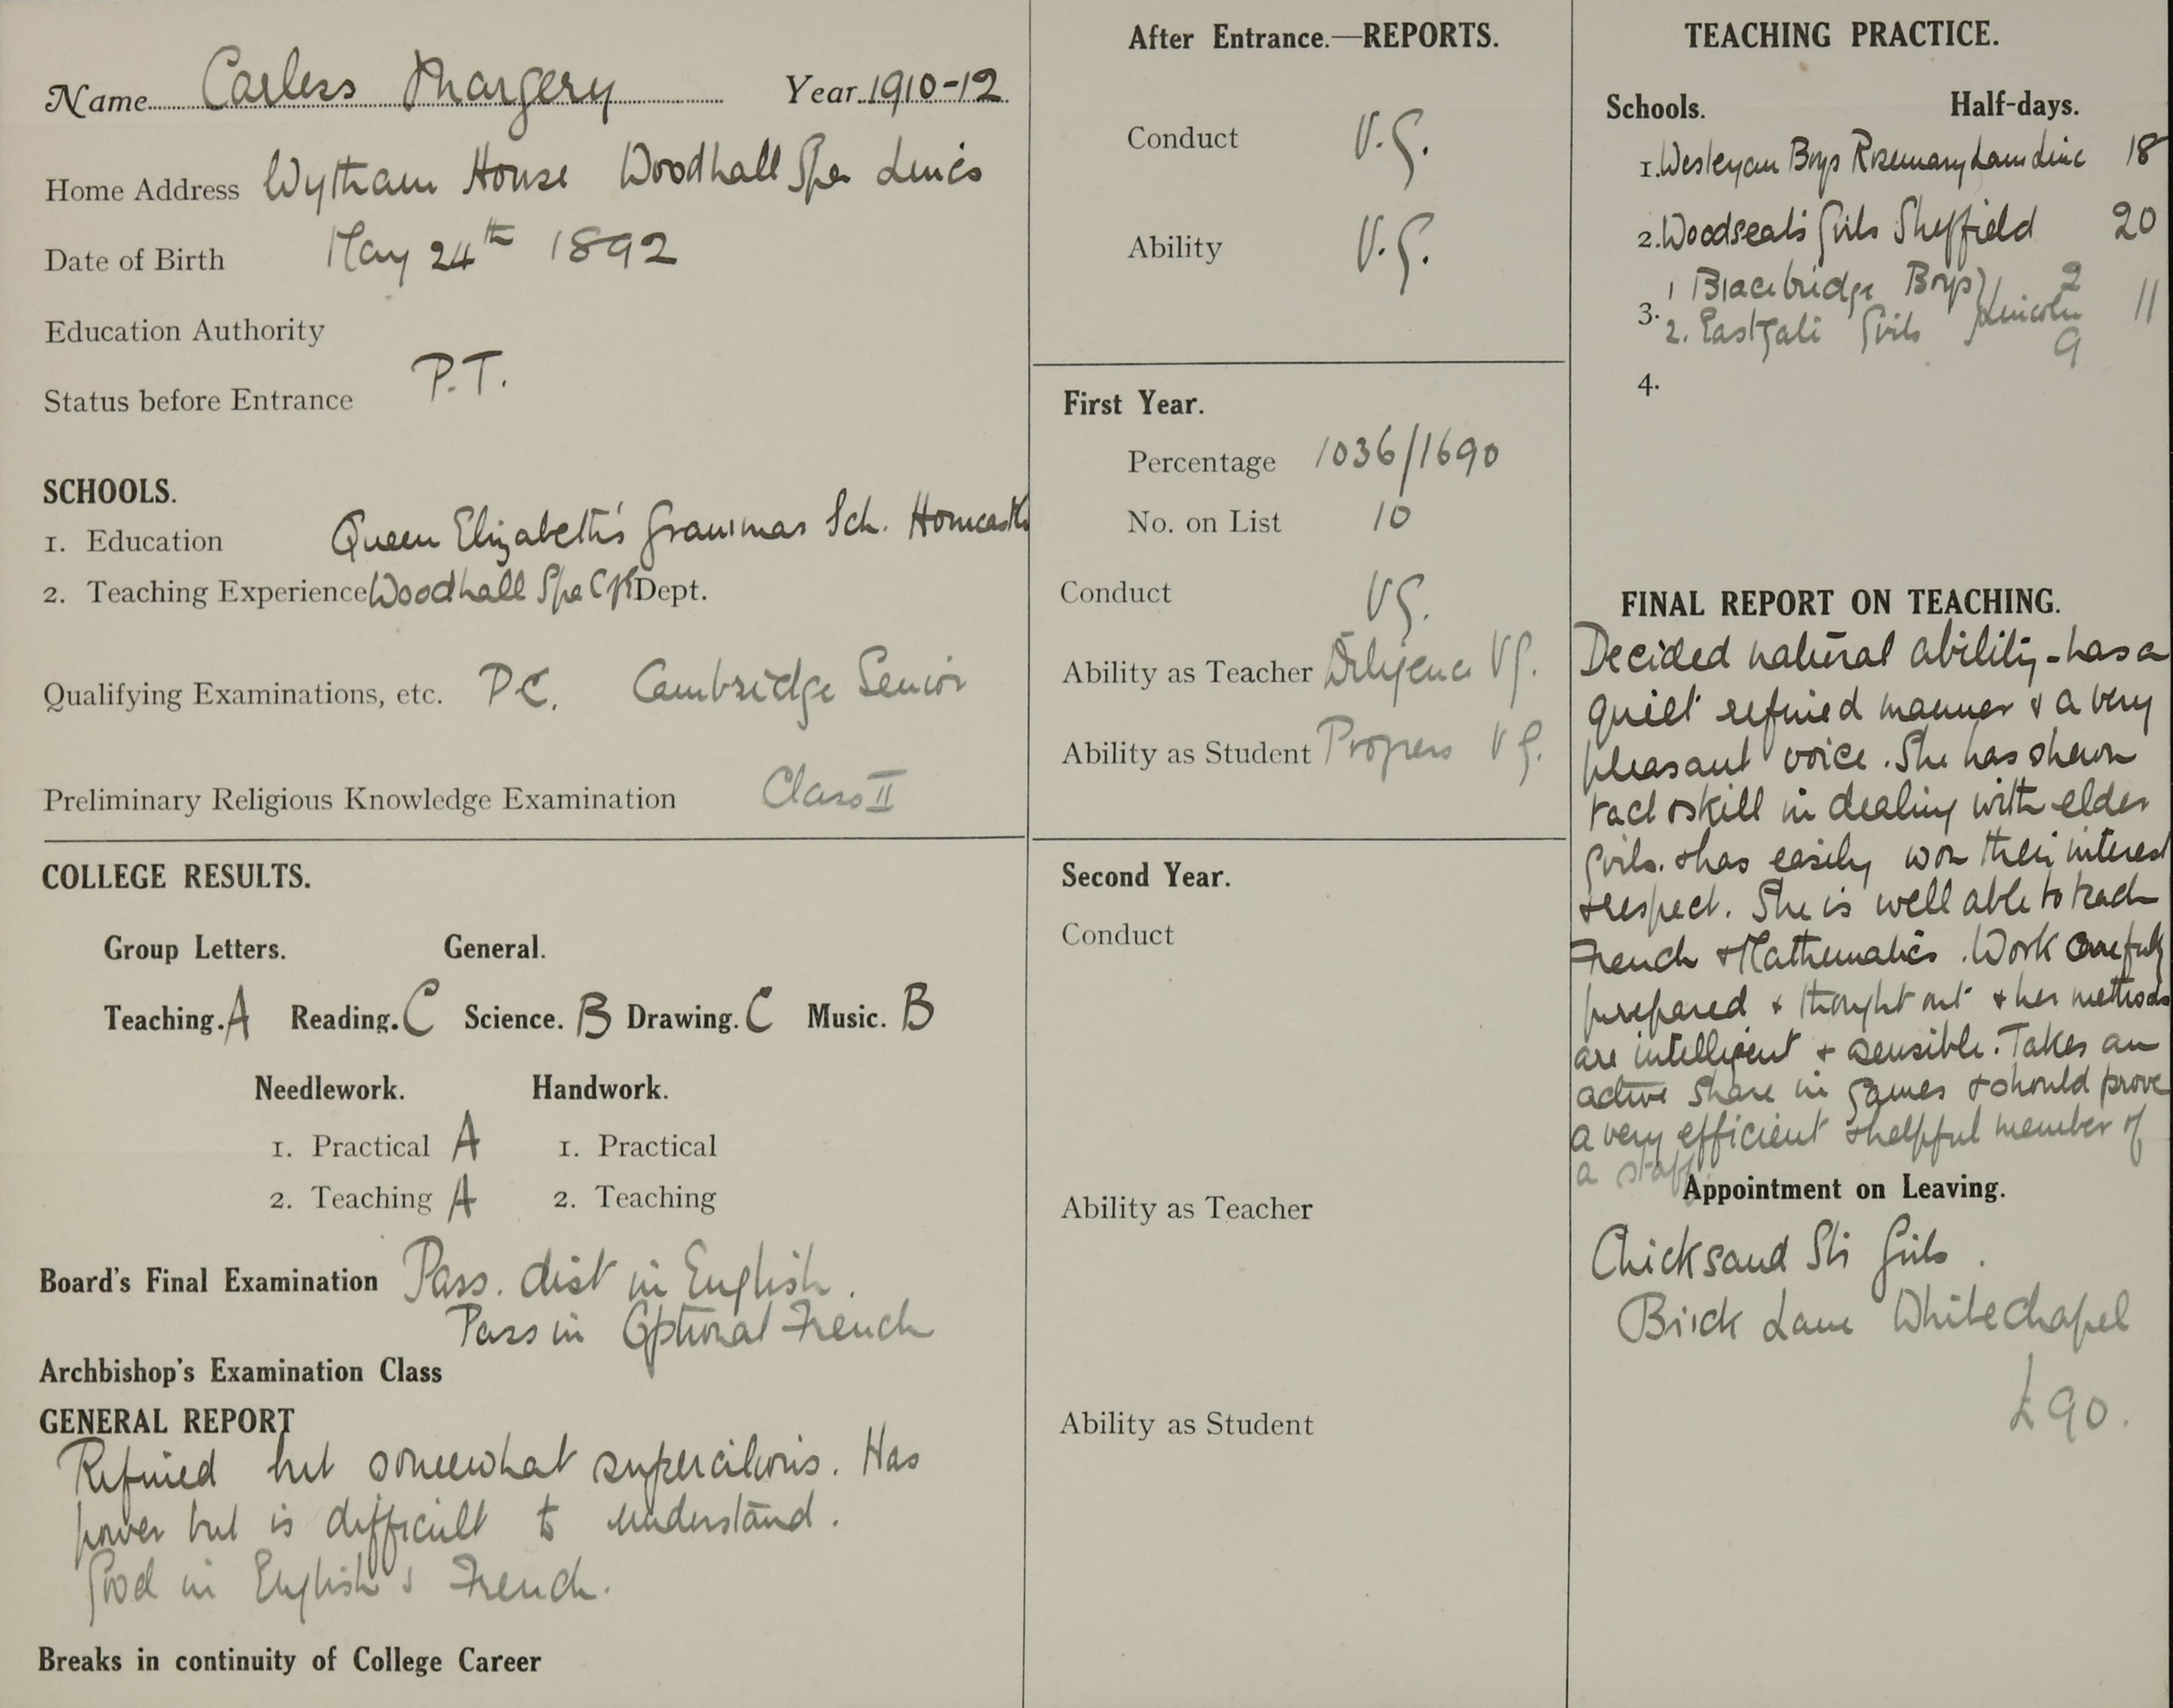 Name Carless Margery Year 1910-12
Home Address Wytham House Woodhall Spa Lincs
Date of Birth May 24th 1892
Education Authority
Status before Entrance P.T.
SCHOOLS.
1. Education Queen Elizabeth's Grammar Sch. Horncastle
2. Teaching Experience Woodhall Spa C of E Dept.
Qualifying Examinations, etc. P.C. Cambridge Senior
Preliminary Religious Knowledge Examination Class II
COLLEGE RESULTS.
Group Letters. General.
Teaching. A Reading. C Science. B Drawing. C Music. B
Needlework. Handwork.
1. Practical A 1. Practical
2. Teaching A 2. Teaching
Board's Final Examination Pass. dist in English.
Pass in Optional French
Archbishop's Examination Class
GENERAL REPORT
Refined but somewhat supercilious. Has
power but is difficult to understand.
Good in English & French.
Breaks in continuity of College Career
After Entrance.—REPORTS.
Conduct V.G.
Ability V.G.
First Year.
Percentage 1036/1690
No. on List 10
Conduct VG.
Ability as Teacher Diligence VG.
Ability as Student Progress VG.
Second Year.
Conduct
Ability as Teacher
Ability as Student
TEACHING PRACTICE.
Schools. Half-days.
1. Wesleyan Boys Rosemary Lane Linc 18
2. Woodseats Girls Sheffield 20
3. 1 Bracebridge Boys } 2
2. Eastgate Girls } Lincoln 9 11
4.
FINAL REPORT ON TEACHING.
Decided natural ability - has a
quiet refined manner & a very
pleasant voice. She has shewn
tact & skill in dealing with elder
girls. & has easily won their interest
& respect. She is well able to teach
French & Mathematics. Work carefully
prepared & thought out & her methods
are intelligent & sensible. Takes an
active share in games & should prove
a very efficient & helpful member of
a staff.
Appointment on Leaving.
Chicksand St Girls.
Brick Lane Whitechapel
£90.